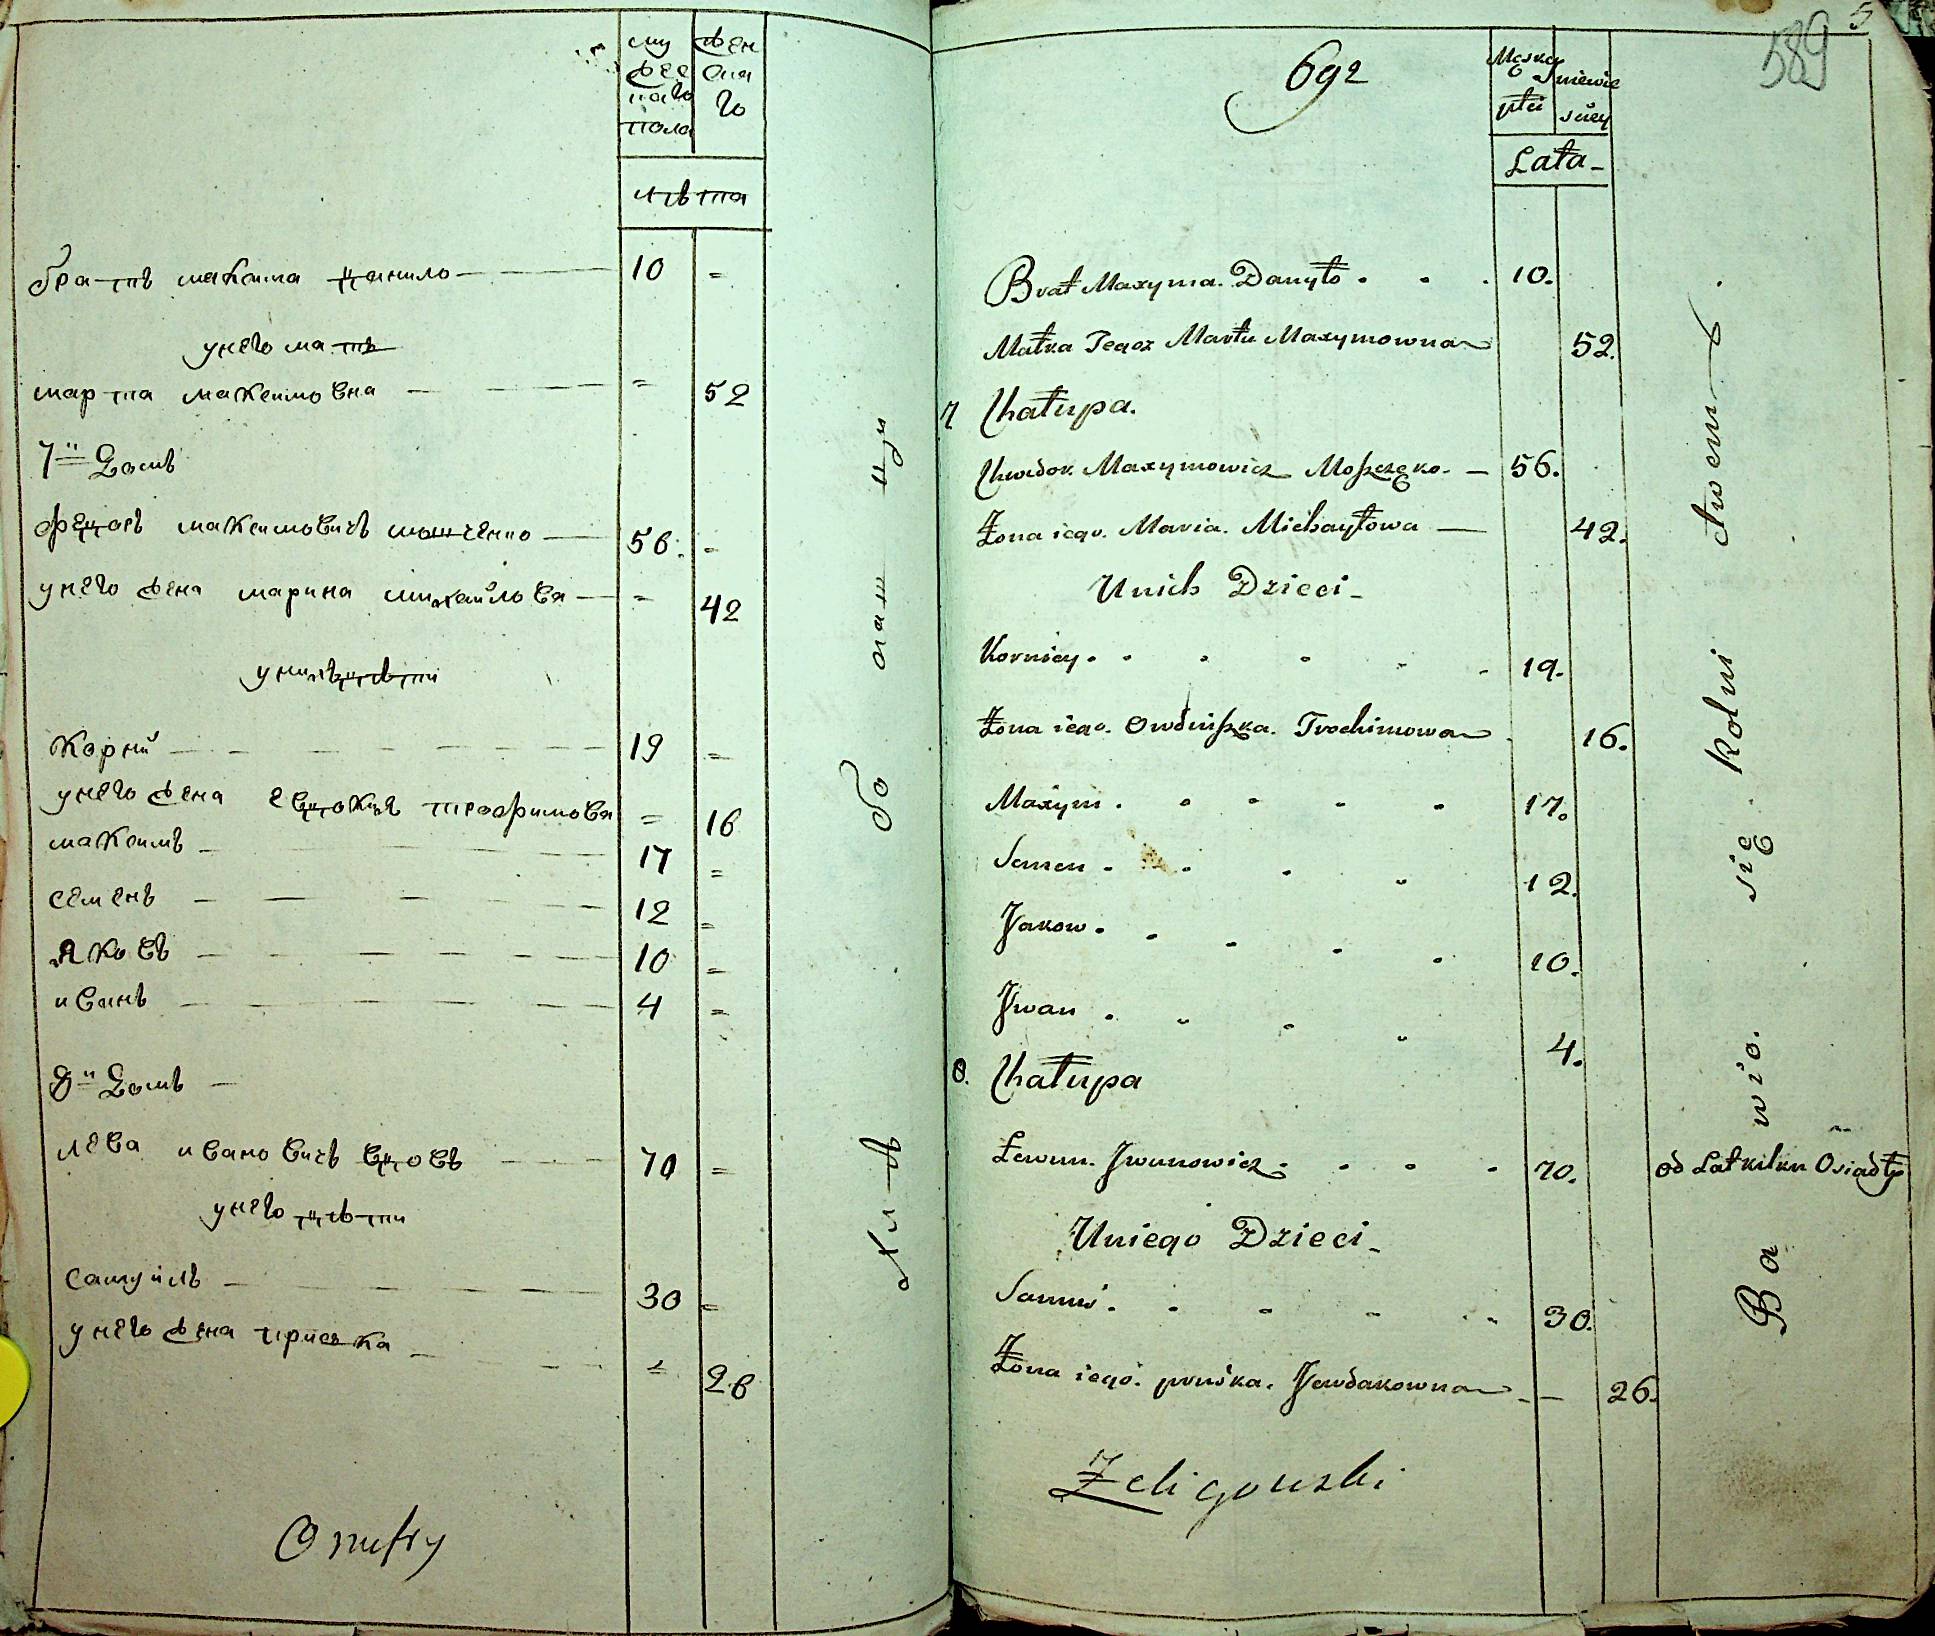 му
жес
наго
пола
жен
ска
го
лѣта
братъ максима данило 10 =
у него мать
марта максимовна = 52
7й Домъ
федоръ максимовичъ мошченко 56. =
у него жена марина михайлова = 42
у нихъ дѣти
корнѣй 19 =
у него жена евдокия трофимова = 16
максимъ 17 =
семенъ 12 =
яковъ 10 =
иванъ 4 =
8й Домъ
лева ивановичъ вдовъ 70 =
у него дѣти
самуйлъ 30 =
у него жена приська = 26
Onufry
Хлѣ бо паш ци
692
589
5
Męskey
płci
niewie
sciey
Lata
Brat Maxyma Danyło 10.
Matka Tegoz Marta Maxymowna 52.
7 Chałupa.
Chwedor Maxymowicz Moszczęko 56.
Żona iego. Maria. Michayłowa 42.
Unich Dzieci
Korniey 19.
Żona iego. Owdiuszka. Trochimowa 16.
Maxym 17.
Semen 12.
Jakow 10.
Jwan 4.
8. Chałupa
Lewun. Jwanowicz 70. od Lat kilku Osiadły
Uniego Dzieci
Samuś 30.
Żona iego. pruśka. Jewdakowna 26.
Żeligowski
Ba wio. się. Rolni ctwem